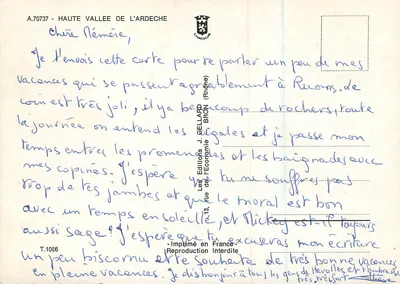 A.70737 - HAUTE VALLEE DE L'ARDECHE
Chère Mémère,
Je t'envois cette carte pour te parler un peu de mes
vacances qui se passent agréablement à Ruoms. Le
coin est très joli, il y a beaucoup de rochers, toute
la journée on entend les cigales et je passe mon
temps entre les promenades et les baignades avec
mes copines. J'espère que tu ne souffres pas
trop de tes jambes et que le moral est bon
avec un temps ensoleillé, et Mickey est-il toujours
aussi sage? J'espère que tu excuseras mon écriture
un peu biscornu et te souhaite de très bonne vacances
en pleine vacances. Je dis bonjour à tous les gens de
très fort
Les Editions J. GELLARD
13, rue de l'Economie - BRON (Rhône)
T. 1086
-Imprimé en France-
Reproduction interdite